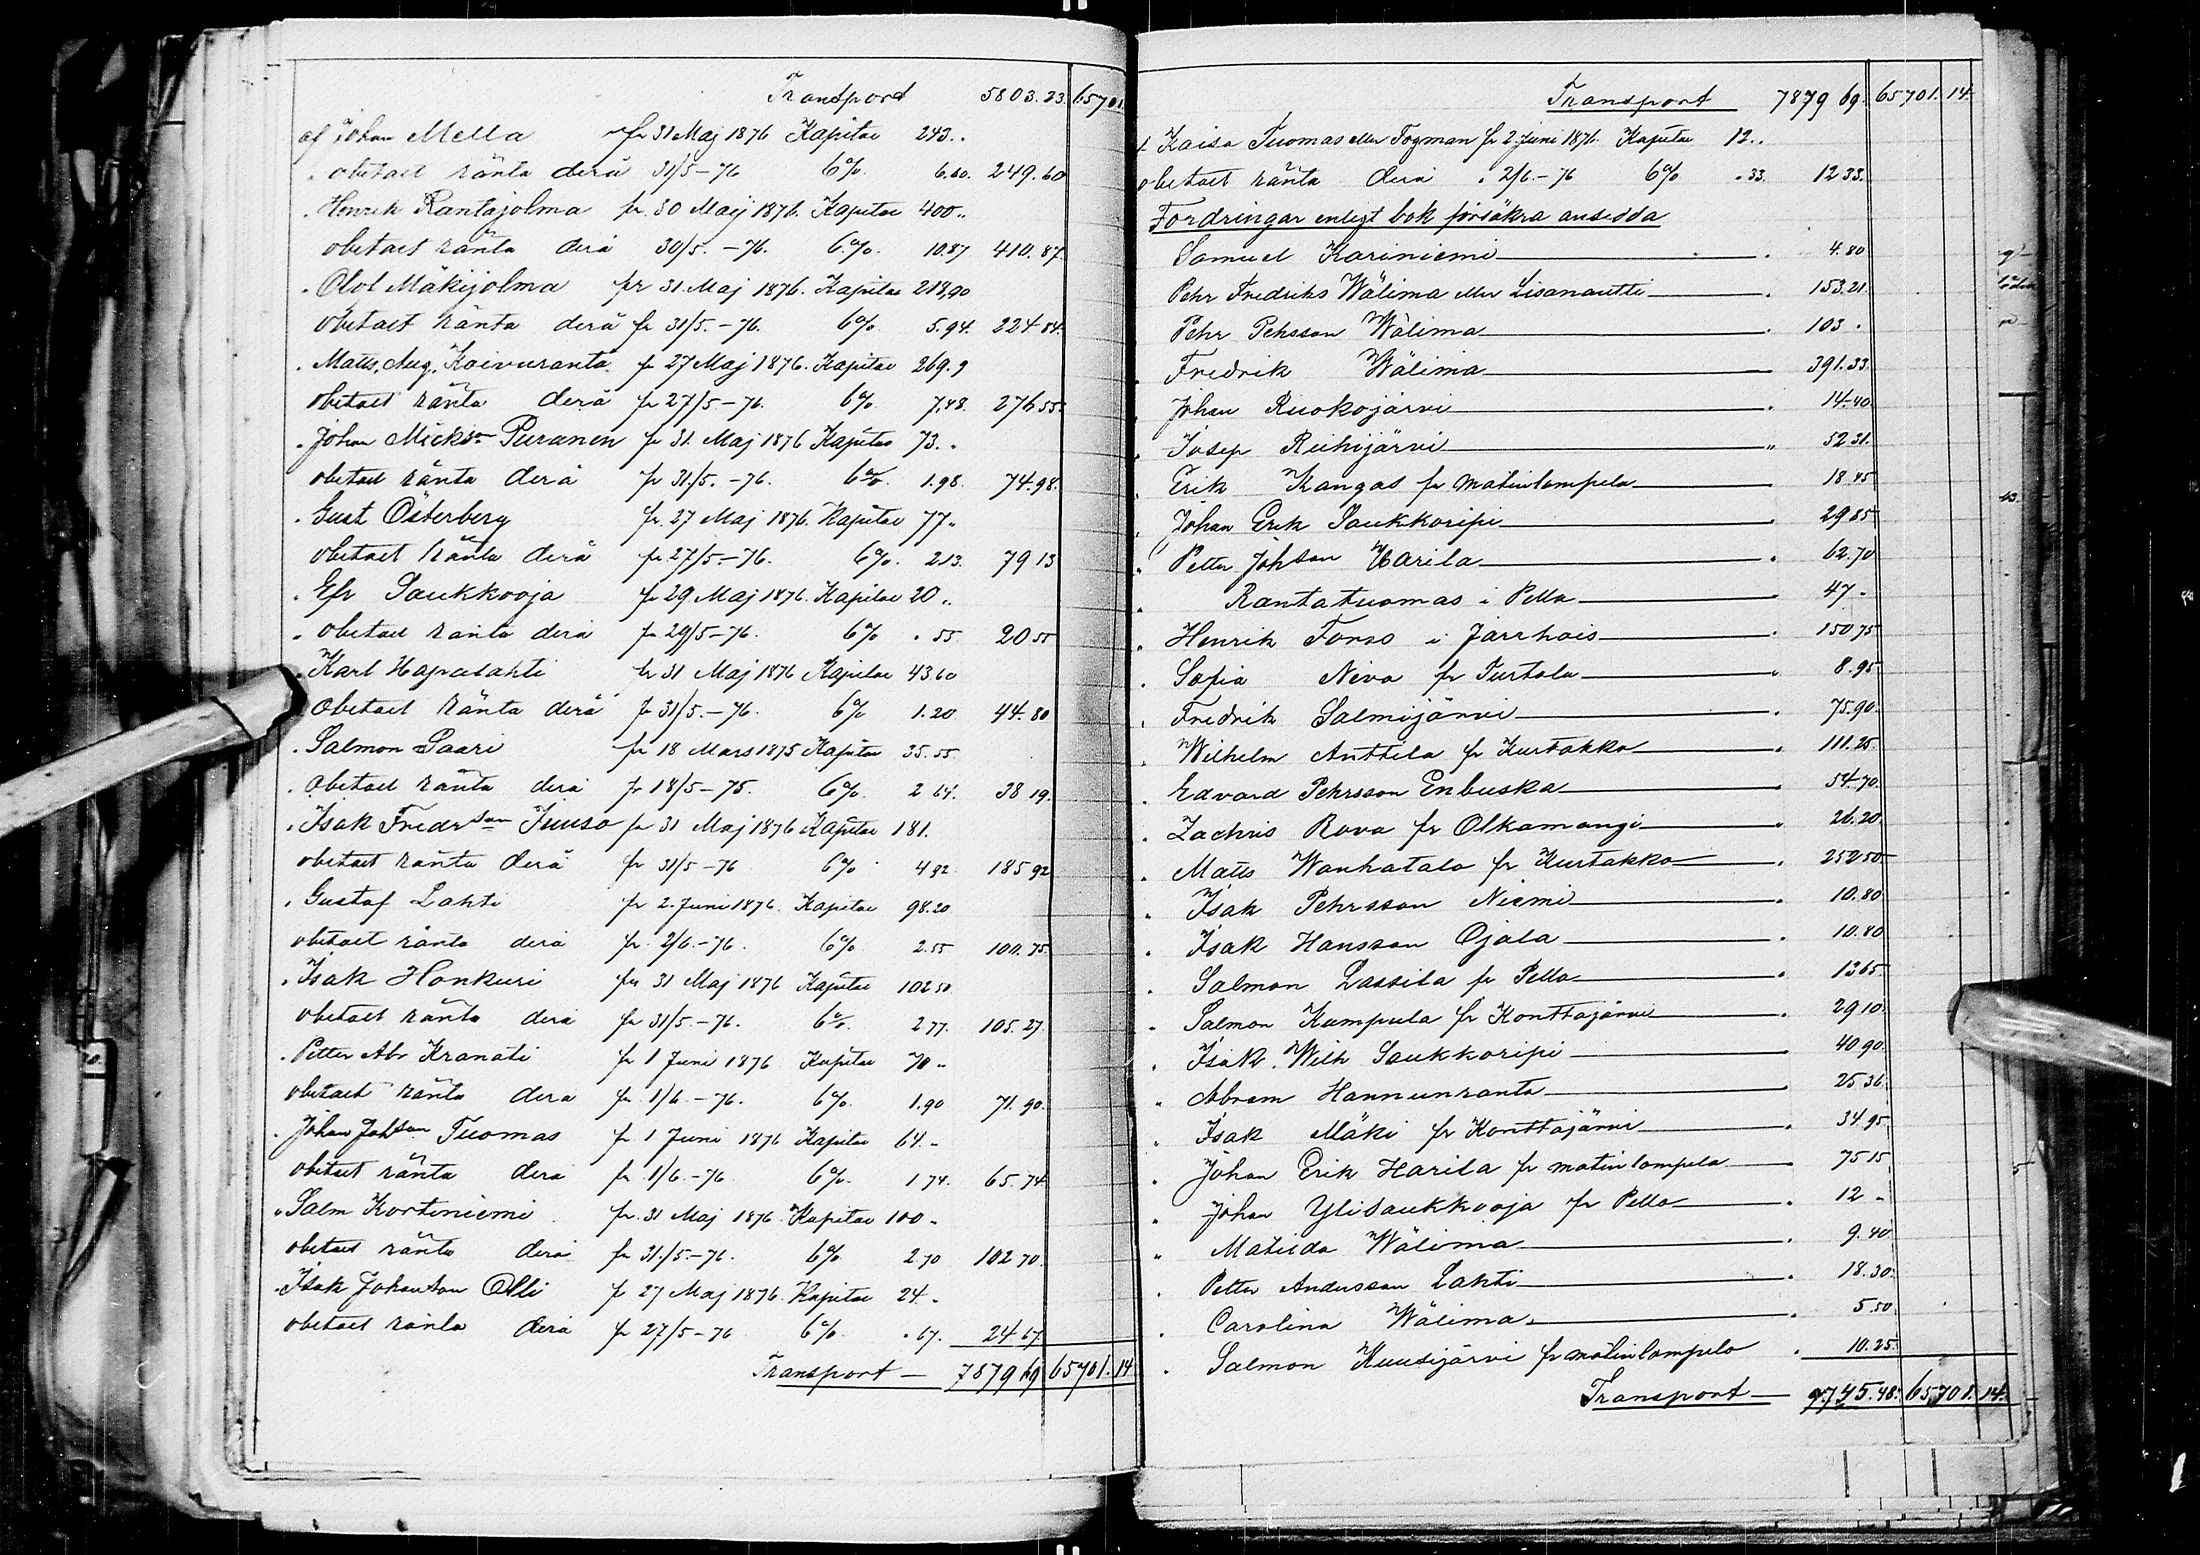 Transport 5803.23. 65701.
af Johan Mella fr 31 Maj 1876 Kapital 243..
" obetalt ränta derå 31/5-76 6% 6.60. 249.60
" Henrik Rantajolma fr. 30 Maj 1876. Kapital 400..
obetalt ränta derå 30/5.-76. 6.%. 10.87 410.87.
" Olof Mäkijolma fr 31. Maj 1876. Kapital 218,90
obetalt ränta derå fr 31/5.-76. 6% 5.94. 224 84.
" Matts. Aug. Koivuranta fr 27 Maj 1876. Kapital 269.9
obetalt ränta derå fr 27/5-76. 6% 7,48. 276 55.
" Johan Mickson Puranen fr 31. Maj 1876 Kapital 73..
obetalt ränta derå fr 31/5.-76. 6%. 1.98. 74.98.
" Gust Österberg fr. 27 Maj 1876. Kapital 77..
obetalt ränta derå fr 27/5.-76. 6%. 2.13. 79 13
" Efr Saukkooja fr 29 Maj 1876. Kapital 20..
" obetalt ränta derå fr 29/5-76. 6% . 55 20 55
" Karl Hapalahti fr 31 Maj 1876 Kapital 43 60
" obetalt ränta derå fr 31/5.-76. 6% 1.20 44.80
" Salmon Saari fr 18 Mars 1875 Kapital 35.55
" obetalt ränta derå fr 18/5-75. 6%. 2 64. 38 19.
" Isak Fredrson Juuso fr 31 Maj 1876 Kapital 181.
obetalt ränta derå fr 31/5-76 6% 4 92 185 92
" Gustaf Lahti fr 2. Juni 1876. Kapital 98.20
obetalt ränta derå fr. 2/6.-76. 6% 2.55 100.75.
" Isak Honkuri fr 31 Maj 1876 Kapital 102 50
obetalt ränta derå fr 31/5.-76. 6%. 2.77. 105.27.
" Petter Abr Kranati fr 1 Juni 1876 Kapital 70..
obetalt ränta derå fr. 1/6.-76. 6%. 1.90 71.90.
" Johan Johson Tuomas fr 1 Juni 1876 Kapital 64..
obetalt ränta derå fr 1/6.-76 6%. 1 74. 65.74.
" Salm Kortiniemi fr. 31 Maj 1876. Kapital 100..
obetalt ränta derå fr 31./5.-76. 6% 2.70 102 70.
" Isak Johanson Olli fr 27 Maj 1876. Kapital 24..
obetalt ränta derå fr 27/5-76 6%. .67. 24 67.
Transport — 7879 69 65701. 14
Transport 7879 69. 65701. 14.
Kaisa Tuomas eller Fogman fr 2. Juni 1876. Kapital 12..
obetalt ränta derå " 2/6.-76 6% .33. 12 33.
Fordringar enligt bok försäkra ansedda
Samuel Kariniemi 4.80
Pehr Fredriks Wälima eller Lisanantti 153.21.
Pehr Pehsson Wälima 103.
Fredrik Wälima 391.33.
Johan Ruokojärvi 14.40
Josep Riihijärvi 52 31.
Erik Kangas fr Matinlompola 18 45
Johan Erik Saukkoripi 29 85
Petter Johson Harila 62.70
Rantatuomas i Pello 47 -
Henrik Forss i Jarrhois 150 75
Sofia Niva fr Turtola 8.95
Fredrik Salmijärvi 75.90.
Wilhelm Anttila fr Kurtakko 111.25.
Edvard Pehrsson Enbuska 54.70.
Zachris Rova fr Olkamangi 26.20.
Matts Wanhatalo fr Kurtakko 252 50
Isak Pehrsson Niemi 10.80
Isak Hansson Ojala 10.80
Salmon Lassila fr Pello 13 65
Salmon Kumpula fr Konttajärvi 29 10.
Isak. Wilh Saukkoripi 40 90.
Abram Hannunranta 25 36
Isak Mäki fr Konttajärvi 34.95
Johan Erik Harila fr matinlompola 75 15
Johan Ylisaukkooja fr Pello 12 -
Matilda Wälima 9.40
Petter Andersson Lahti 18.30.
Carolina Wälima 5.50
Salmon Kuusijärvi fr matinlompolo 10.25.
Transport — 9.745.48. 65,701. 14.